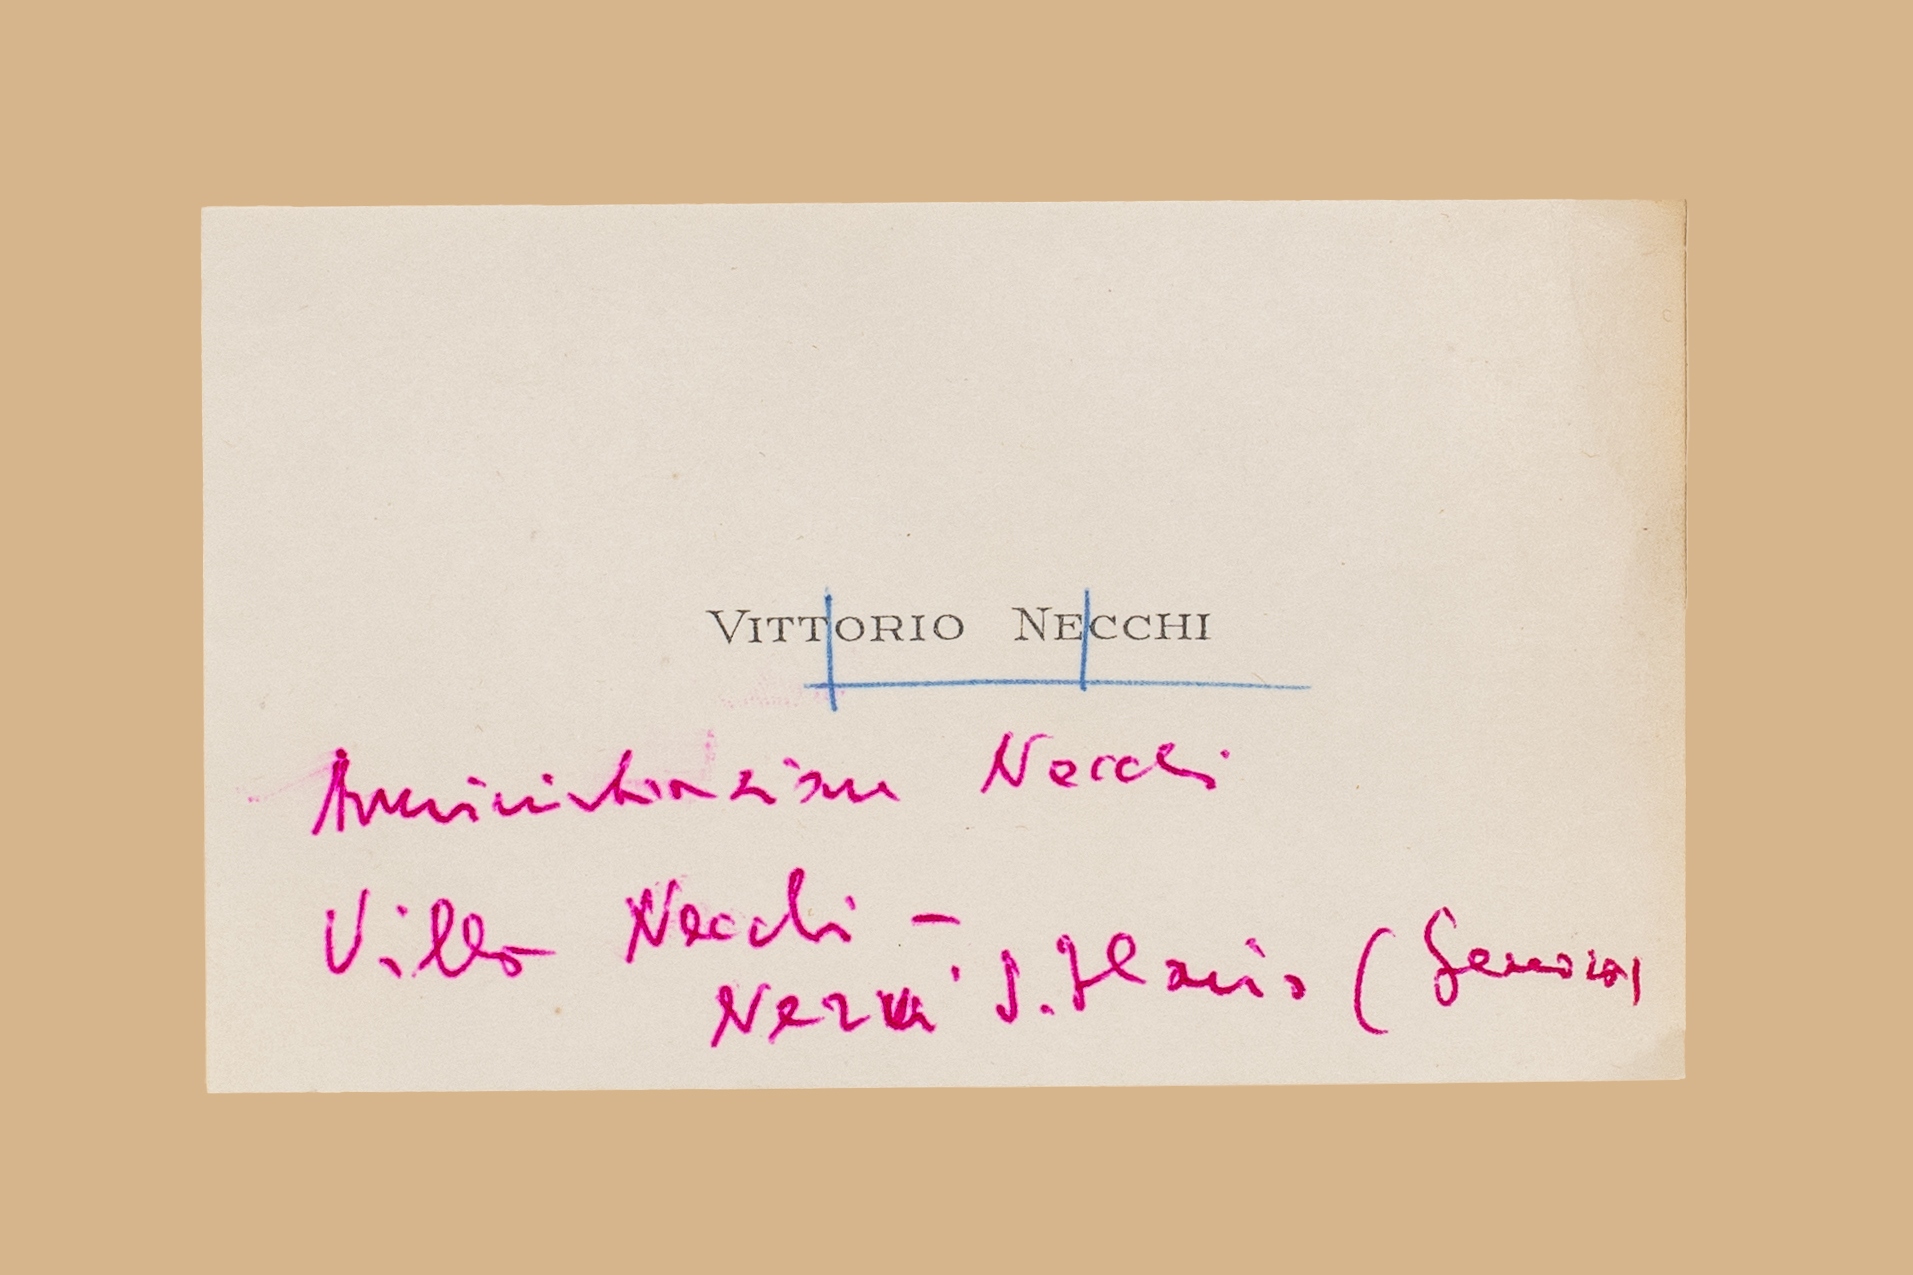 VITTORIO NECCHI
Amministrazione Necchi
Villa Necchi –
Nervi S. Ilario (Genova)